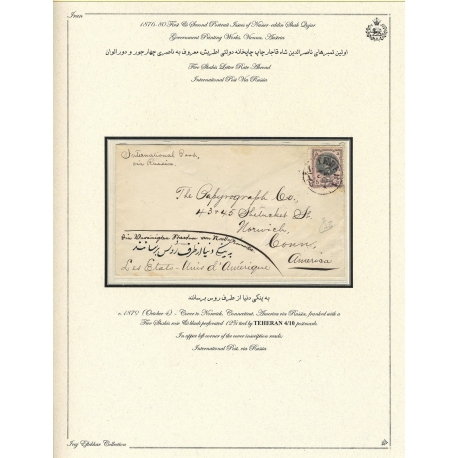 Iran
1876-80 First & Second Portrait Issues of Nasser-eddin Shah Qajar
Government Printing Works, Vienna, Austria
اولین تمبرهای ناصرالدین شاه قاجار چاپ چاپخانه دولتی اطریش معروف به ناصری چهارجور و دورالوان
Five Shahis Letter Rate Abroad
International Post Via Russia
International Post,
via Russia.
The Papyrograph Co.,
43 & 45 Shetucket St.
Norwich,
Conn.
America
به ینگی دنیا از طرف روس برسانند
Les Etats-Unis d'Amérique
به ینگی دنیا از طرف روس برسانند
c.1879 (October 4) - Cover to Norwich, Connecticut, America via Russia, franked with a
Five Shahis rose & black perforated 12½ tied by TEHERAN 4/10 postmark.
In upper left corner of the cover inscription reads:
International Post, via Russia.
Iraj Eftekhar Collection